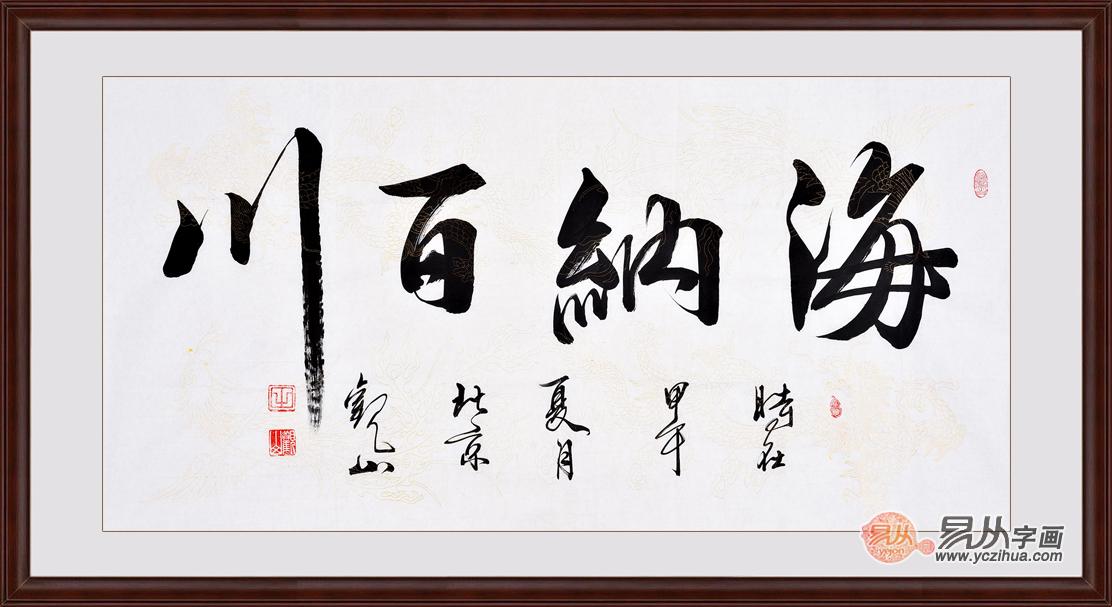 海納百川
時在甲午夏月北京觀山
易从字画
www.yczihua.com
易从
yicon